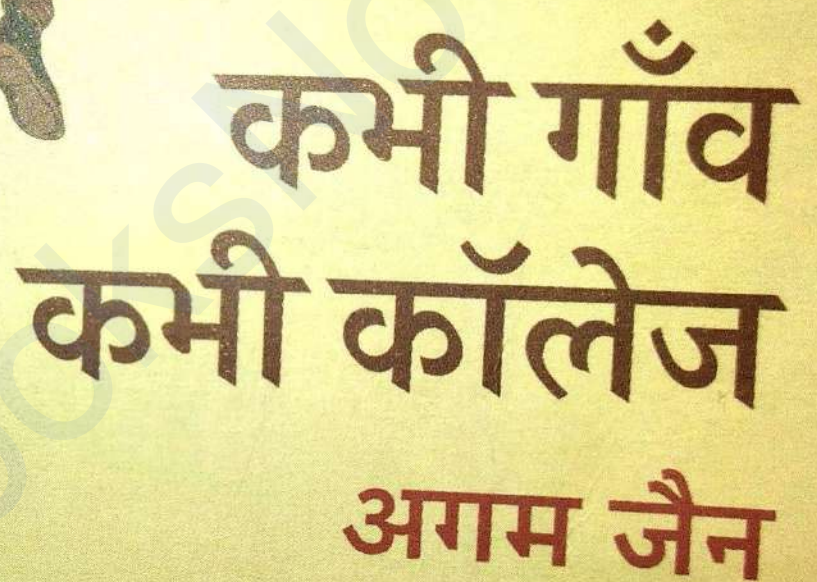 कभी गाँव
कभी कॉलेज
अगम जैन